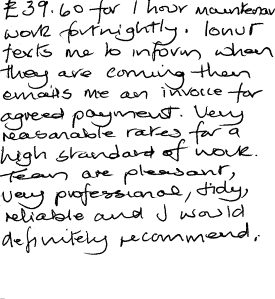 £39.60 for 1 hour maintenan
work fortnightly. Ionut
texts me to inform when
they are coming then
emails me an invoice for
agreed payment. Very
reasonable rates for a
high standard of work.
Team are pleasant,
very professional, tidy,
reliable and I would
definitely recommend.